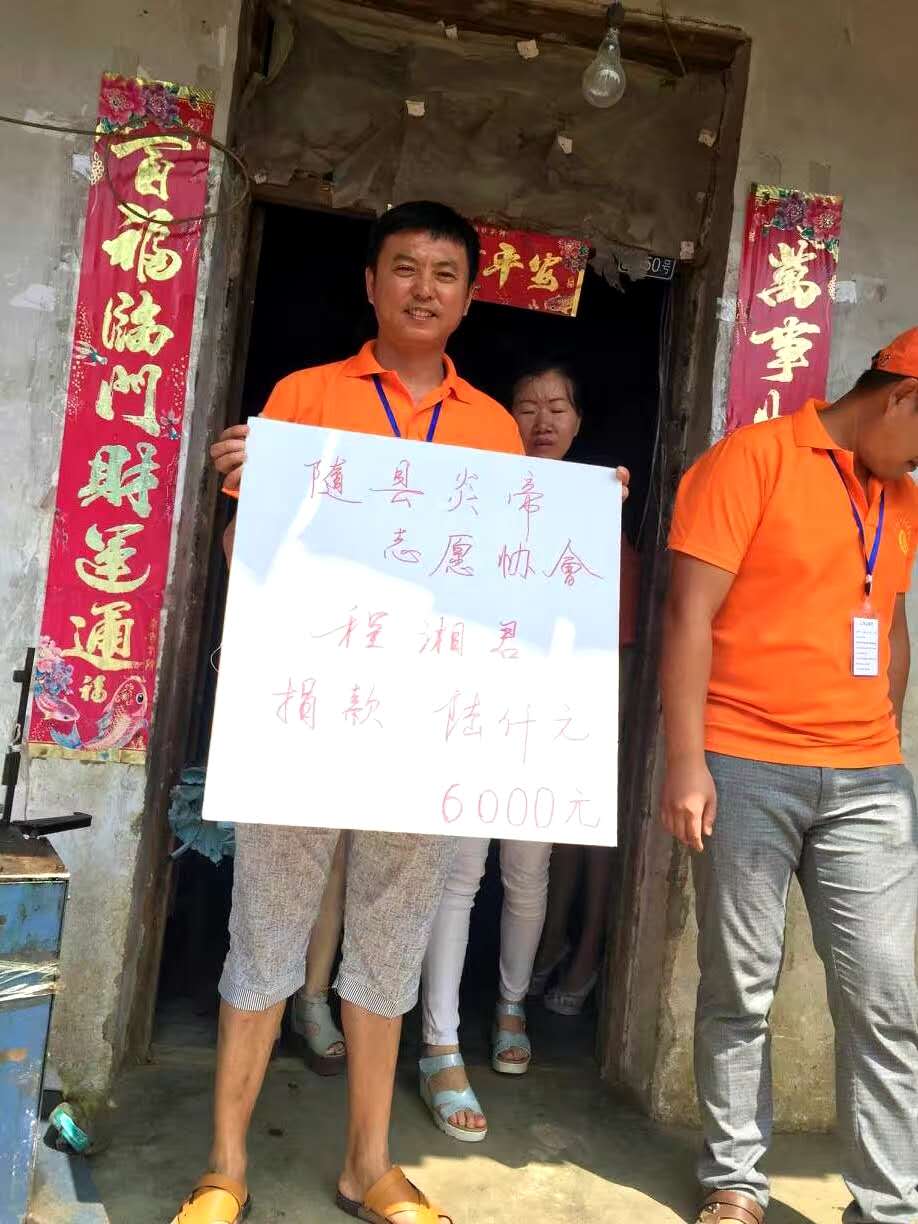 百福临门財运通
福
平安
50号
萬事
随县炎帝
志愿协會
程湘君
捐款 陆仟元
6000元